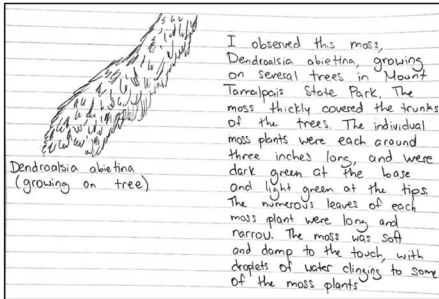 I observed this moss,
Dendroalsia abietina, growing
on several trees in Mount
Tamalpais State Park. The
moss thickly covered the trunks
of the trees. The individual
moss plants were each around
three inches long, and were
dark green at the base
and light green at the tips.
The numerous leaves of each
moss plant were long and
narrow. The moss was soft
and damp to the touch, with
droplets of water clinging to some
of the moss plants
Dendroalsia abietina
(growing on tree)